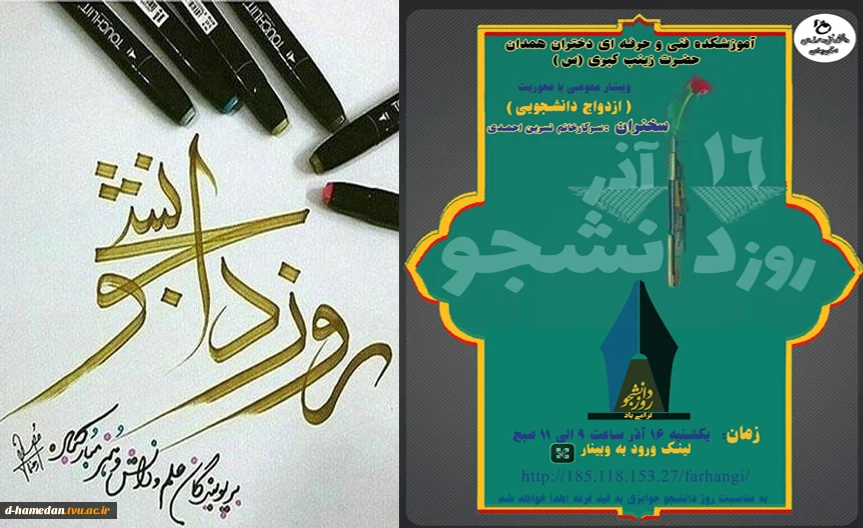 TOUCHLIIT
TOUCHLIIT
روز دانشجو
بر پویندگان علم و دانش و هنر مبارکباد
d-hamedan.tvu.ac.ir
آموزشکده فنی و حرفه ای دختران همدان
حضرت زینب کبری (س)
وبینار عمومی با محوریت
(ازدواج دانشجویی)
سخنران :سرکارخانم نسرین احمدی
۱۶ آذر
روز دانشجو
روز دانشجو
گرامی باد
زمان: یکشنبه ۱۶ آذر ساعت ۹ الی ۱۱ صبح
لینک ورود به وبینار
http://185.118.153.27/farhangi/
به مناسبت روز دانشجو جوایزی به قید قرعه اهدا خواهد شد